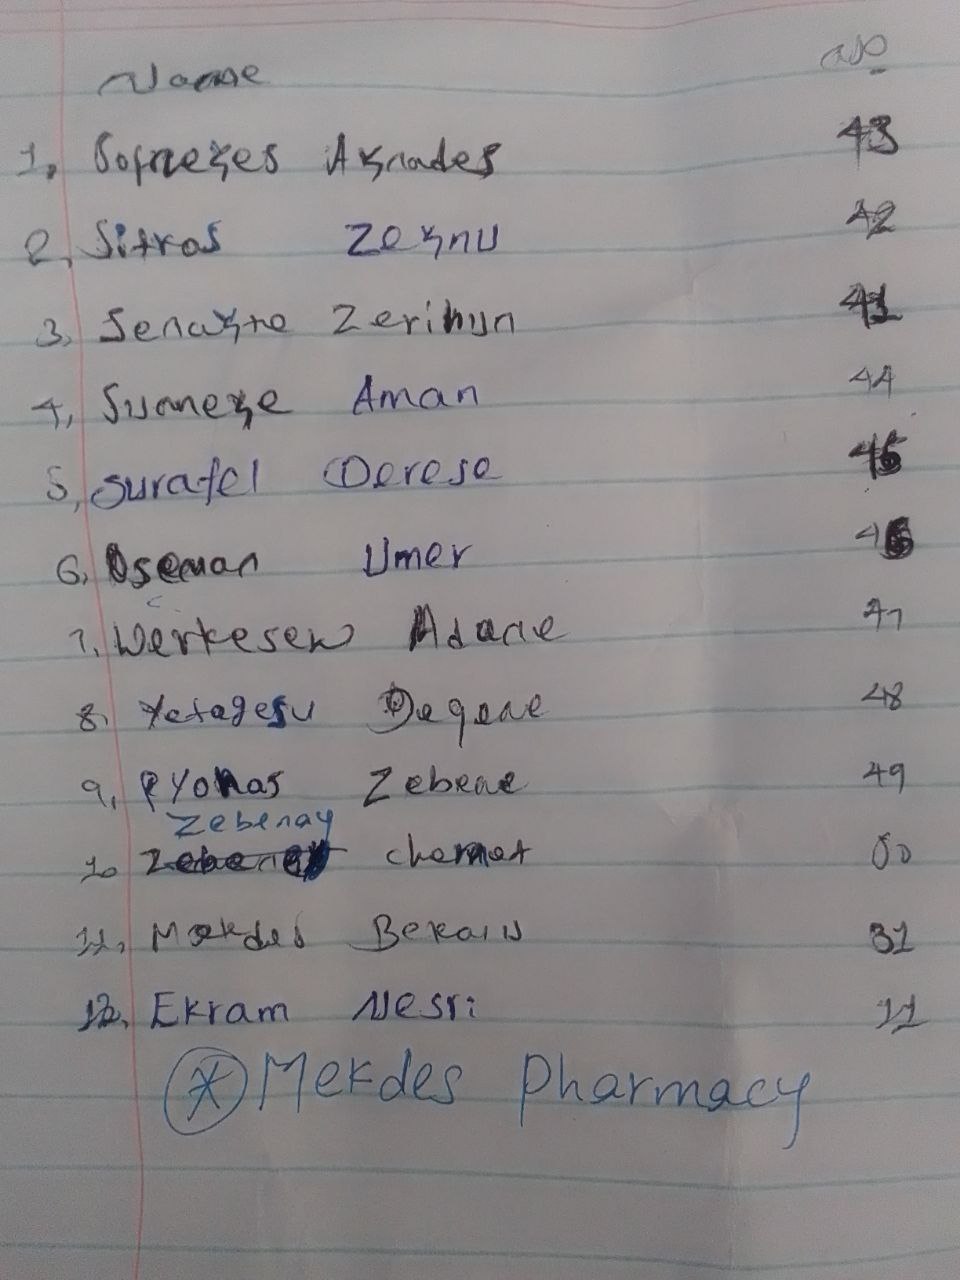 Name no
1, Agnades 43
2, Sitras Zegnu 42
3, Senayne Zerihun 41
4, Aman 44
5, Surafel Derese 45
6, Oseman Umer 46
7, Werkesew Adane 47
8, Yetagesu Degene 48
9, eyohas Zebene 49
Zebenay
10 chernet 50
11, Mekdes Bekalu 31
12, Ekram Nesri 11
* Mekdes Pharmacy